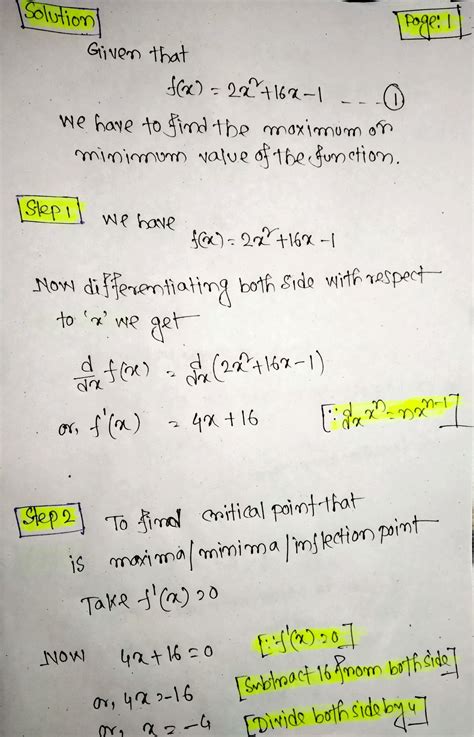 Solution
Page: 1
Given that
f(x) = 2x²+16x-1 --- ①
we have to find the maximum or
minimum value of the function.
Step 1 we have
f(x) = 2x²+16x-1
Now differentiating both side with respect
to 'x' we get
d/dx f(x) = d/dx (2x²+16x-1)
or, f'(x) = 4x+16 [∵ d/dx xⁿ = nxⁿ⁻¹]
Step 2 To find critical point that
is maxima/minima/inflection point
Take f'(x)=0
Now 4x+16=0 [∵ f'(x)=0]
or, 4x=-16 [Subtract 16 from both side]
or, x=-4 [Divide both side by 4]